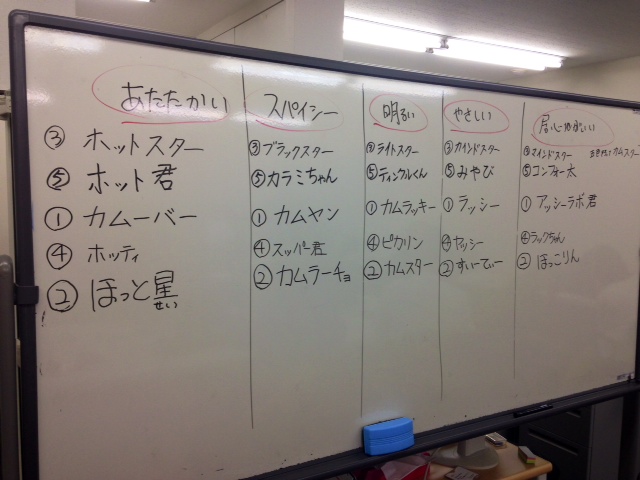 あたたかい
③ ホットスター
⑤ ホット君
① カムーバー
④ ホッティ
② ほっと星
せい
スパイシー
③ ブラックスター
⑤ カラミちゃん
① カムヤン
④ スッパ君
② カムラーチョ
明るい
③ ライトスター
⑤ ティンクルくん
① カムラッキー
④ ピカリン
② カムスター
やさしい
③ カインドスター
⑤ みやび
① ラッシー
④ ヤッシー
② すぃーてぃー
居心地いい
③ マインドスター カムスター
⑤ コンフォー太
① アッシーラボ君
④ ラックちゃん
② ほっこりん